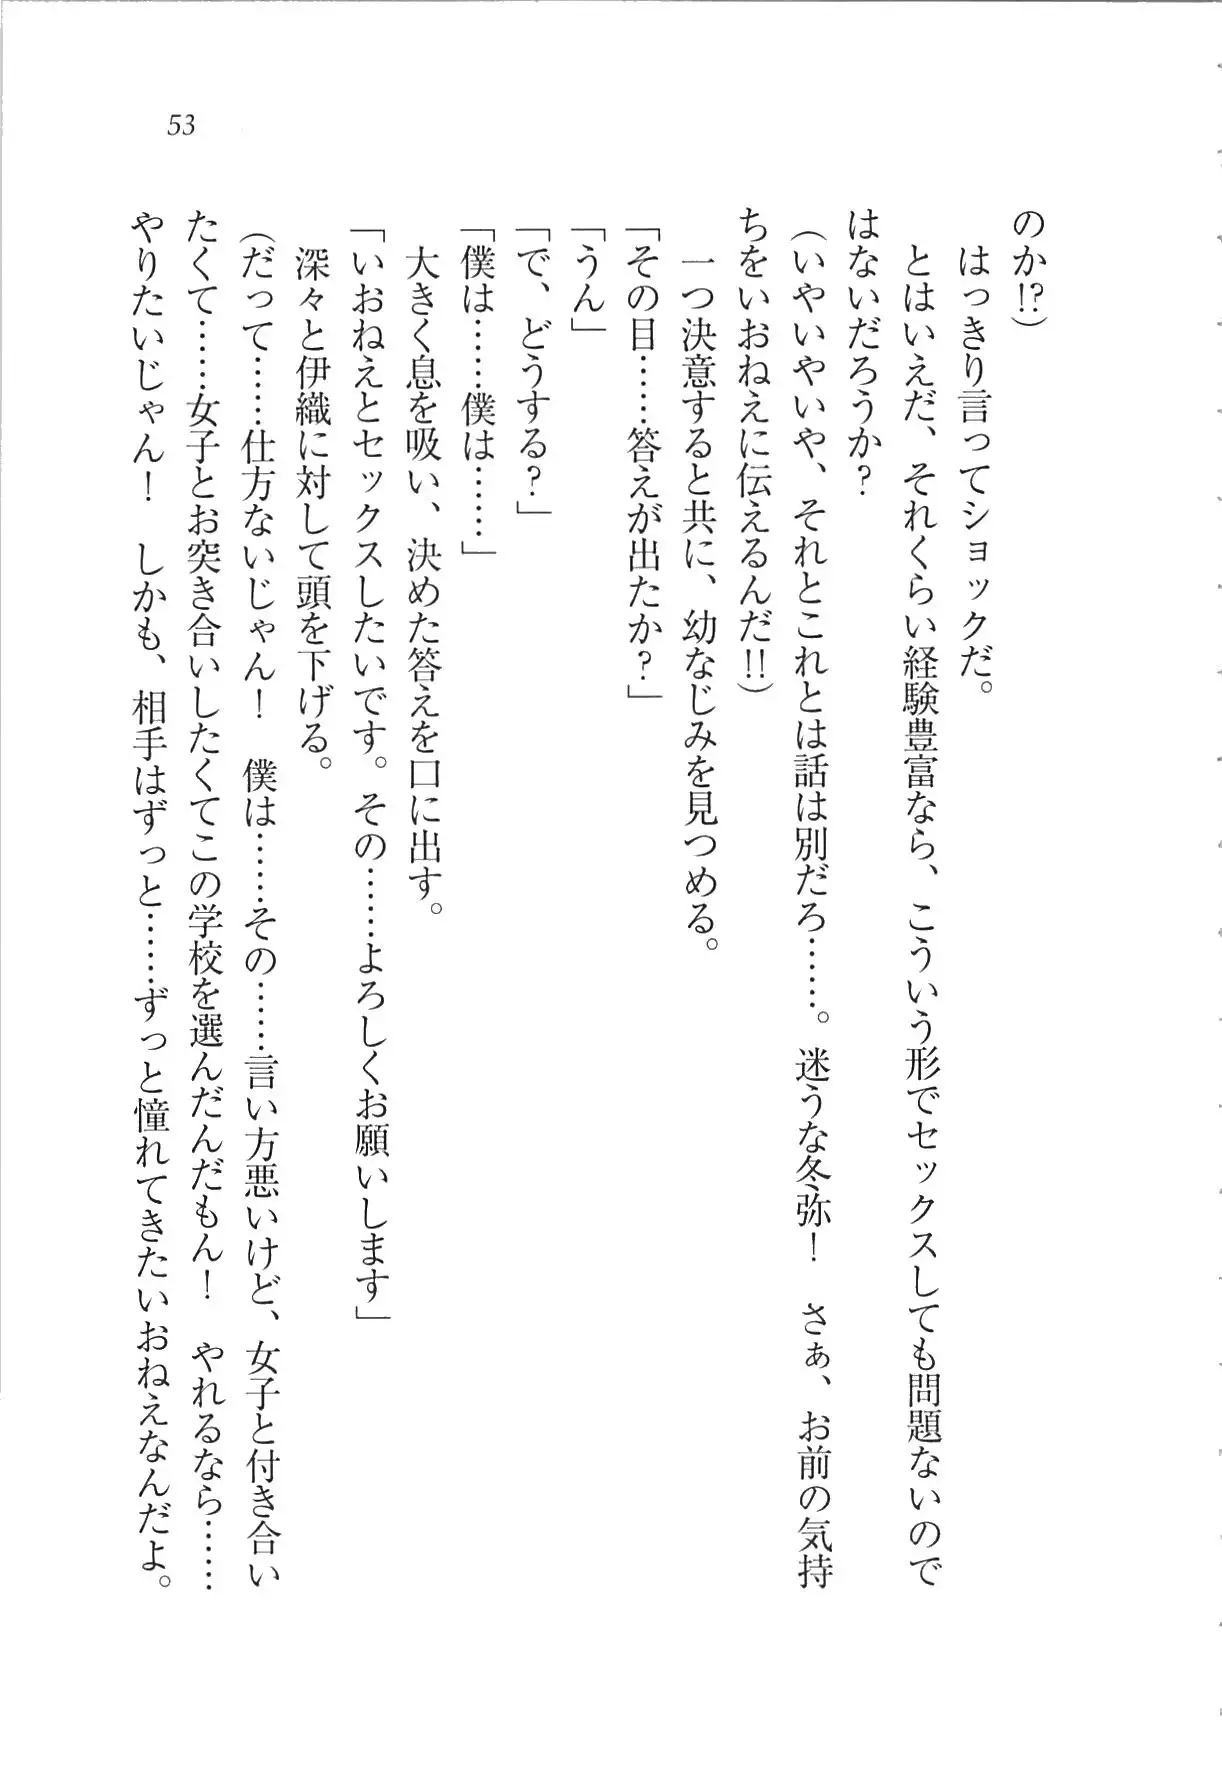 53
のか!?）
　はっきり言ってショックだ。
　とはいえだ、それくらい経験豊富なら、こういう形でセックスしても問題ないので
はないだろうか？
（いやいやいや、それとこれとは話は別だろ……。迷うな冬弥！　さぁ、お前の気持
ちをいおねえに伝えるんだ!!）
　一つ決意すると共に、幼なじみを見つめる。
「その目……答えが出たか？」
「うん」
「で、どうする？」
「僕は……僕は……」
　大きく息を吸い、決めた答えを口に出す。
「いおねえとセックスしたいです。その……よろしくお願いします」
　深々と伊織に対して頭を下げる。
（だって……仕方ないじゃん！　僕は……その……言い方悪いけど、女子と付き合い
たくて……女子とお突き合いしたくてこの学校を選んだんだもん！　やれるなら……
やりたいじゃん！　しかも、相手はずっと……ずっと憧れてきたいおねえなんだよ。